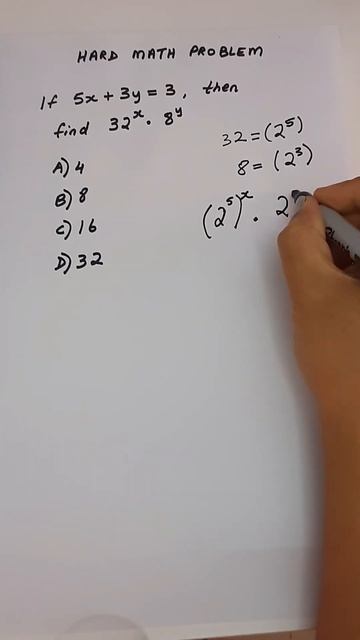 HARD MATH PROBLEM
If 5x + 3y = 3, then
find 32ˣ · 8ʸ
A) 4
B) 8
C) 16
D) 32
32 = (2⁵)
8 = (2³)
(2⁵)ˣ · 2